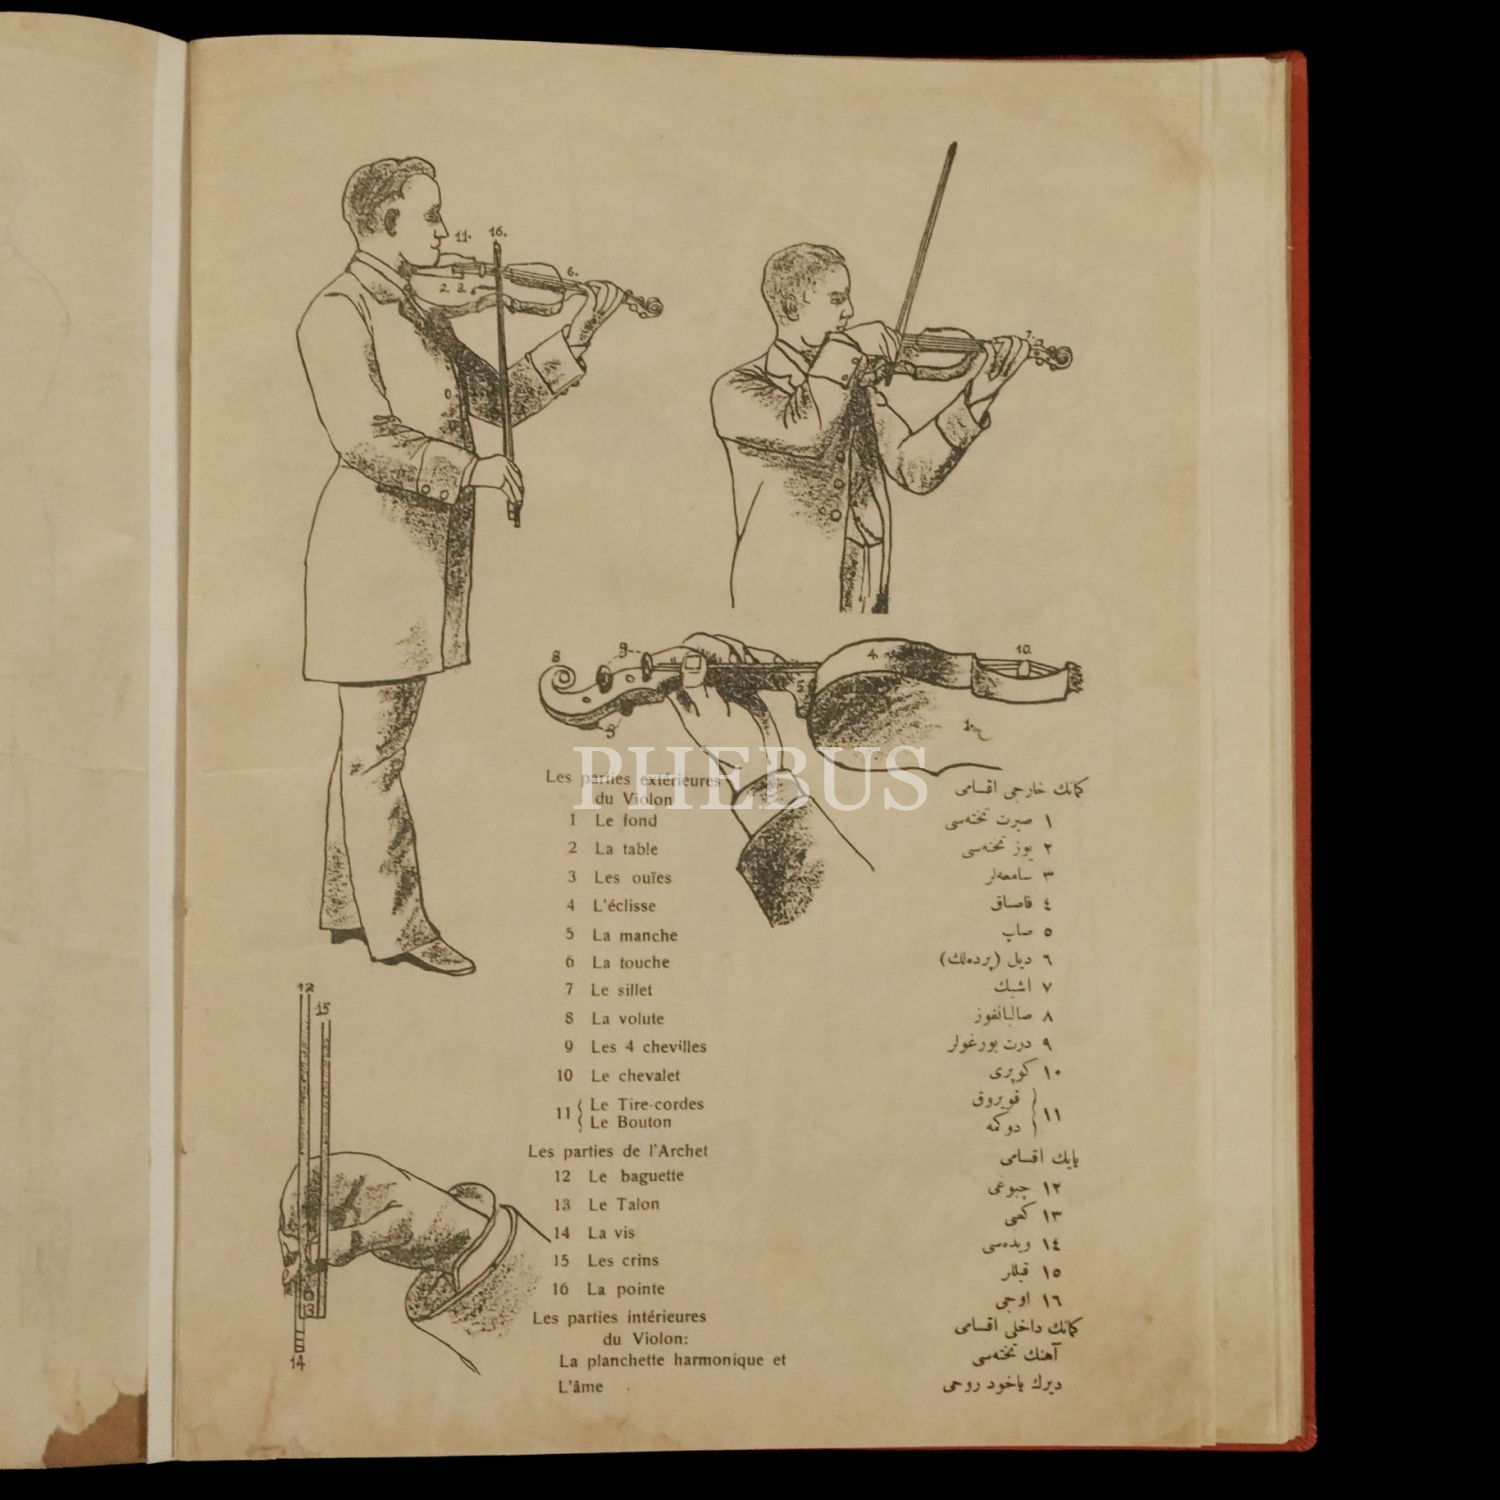 11. 16.
6.
2. 3.
7.
8 9 4 10
5
9 1
PHEBUS
Les parties extérieures
du Violon
1 Le fond
2 La table
3 Les ouïes
4 L'éclisse
5 La manche
6 La touche
7 Le sillet
8 La volute
9 Les 4 chevilles
10 Le chevalet
11 { Le Tire-cordes
Le Bouton
Les parties de l'Archet
12 Le baguette
13 Le Talon
14 La vis
15 Les crins
16 La pointe
Les parties intérieures
du Violon:
La planchette harmonique et
L'âme
كمانك خارجی اقسامی
١ صیرت تخته‌سی
٢ یوز تخته‌سی
٣ سامعه‌لر
٤ قاصناق
٥ صاپ
٦ دیل (پرده‌لك)
٧ اشیك
٨ صالیانغوز
٩ درت بورغولر
١٠ كوپری
١١ { قویروق
دوكمه
یایك اقسامی
١٢ چبوغی
١٣
١٤ ویده‌سی
١٥ قیللر
١٦ اوجی
كمانك داخلی اقسامی
آهنك تخته‌سی
دیرك یاخود روحی
12
15
13
14